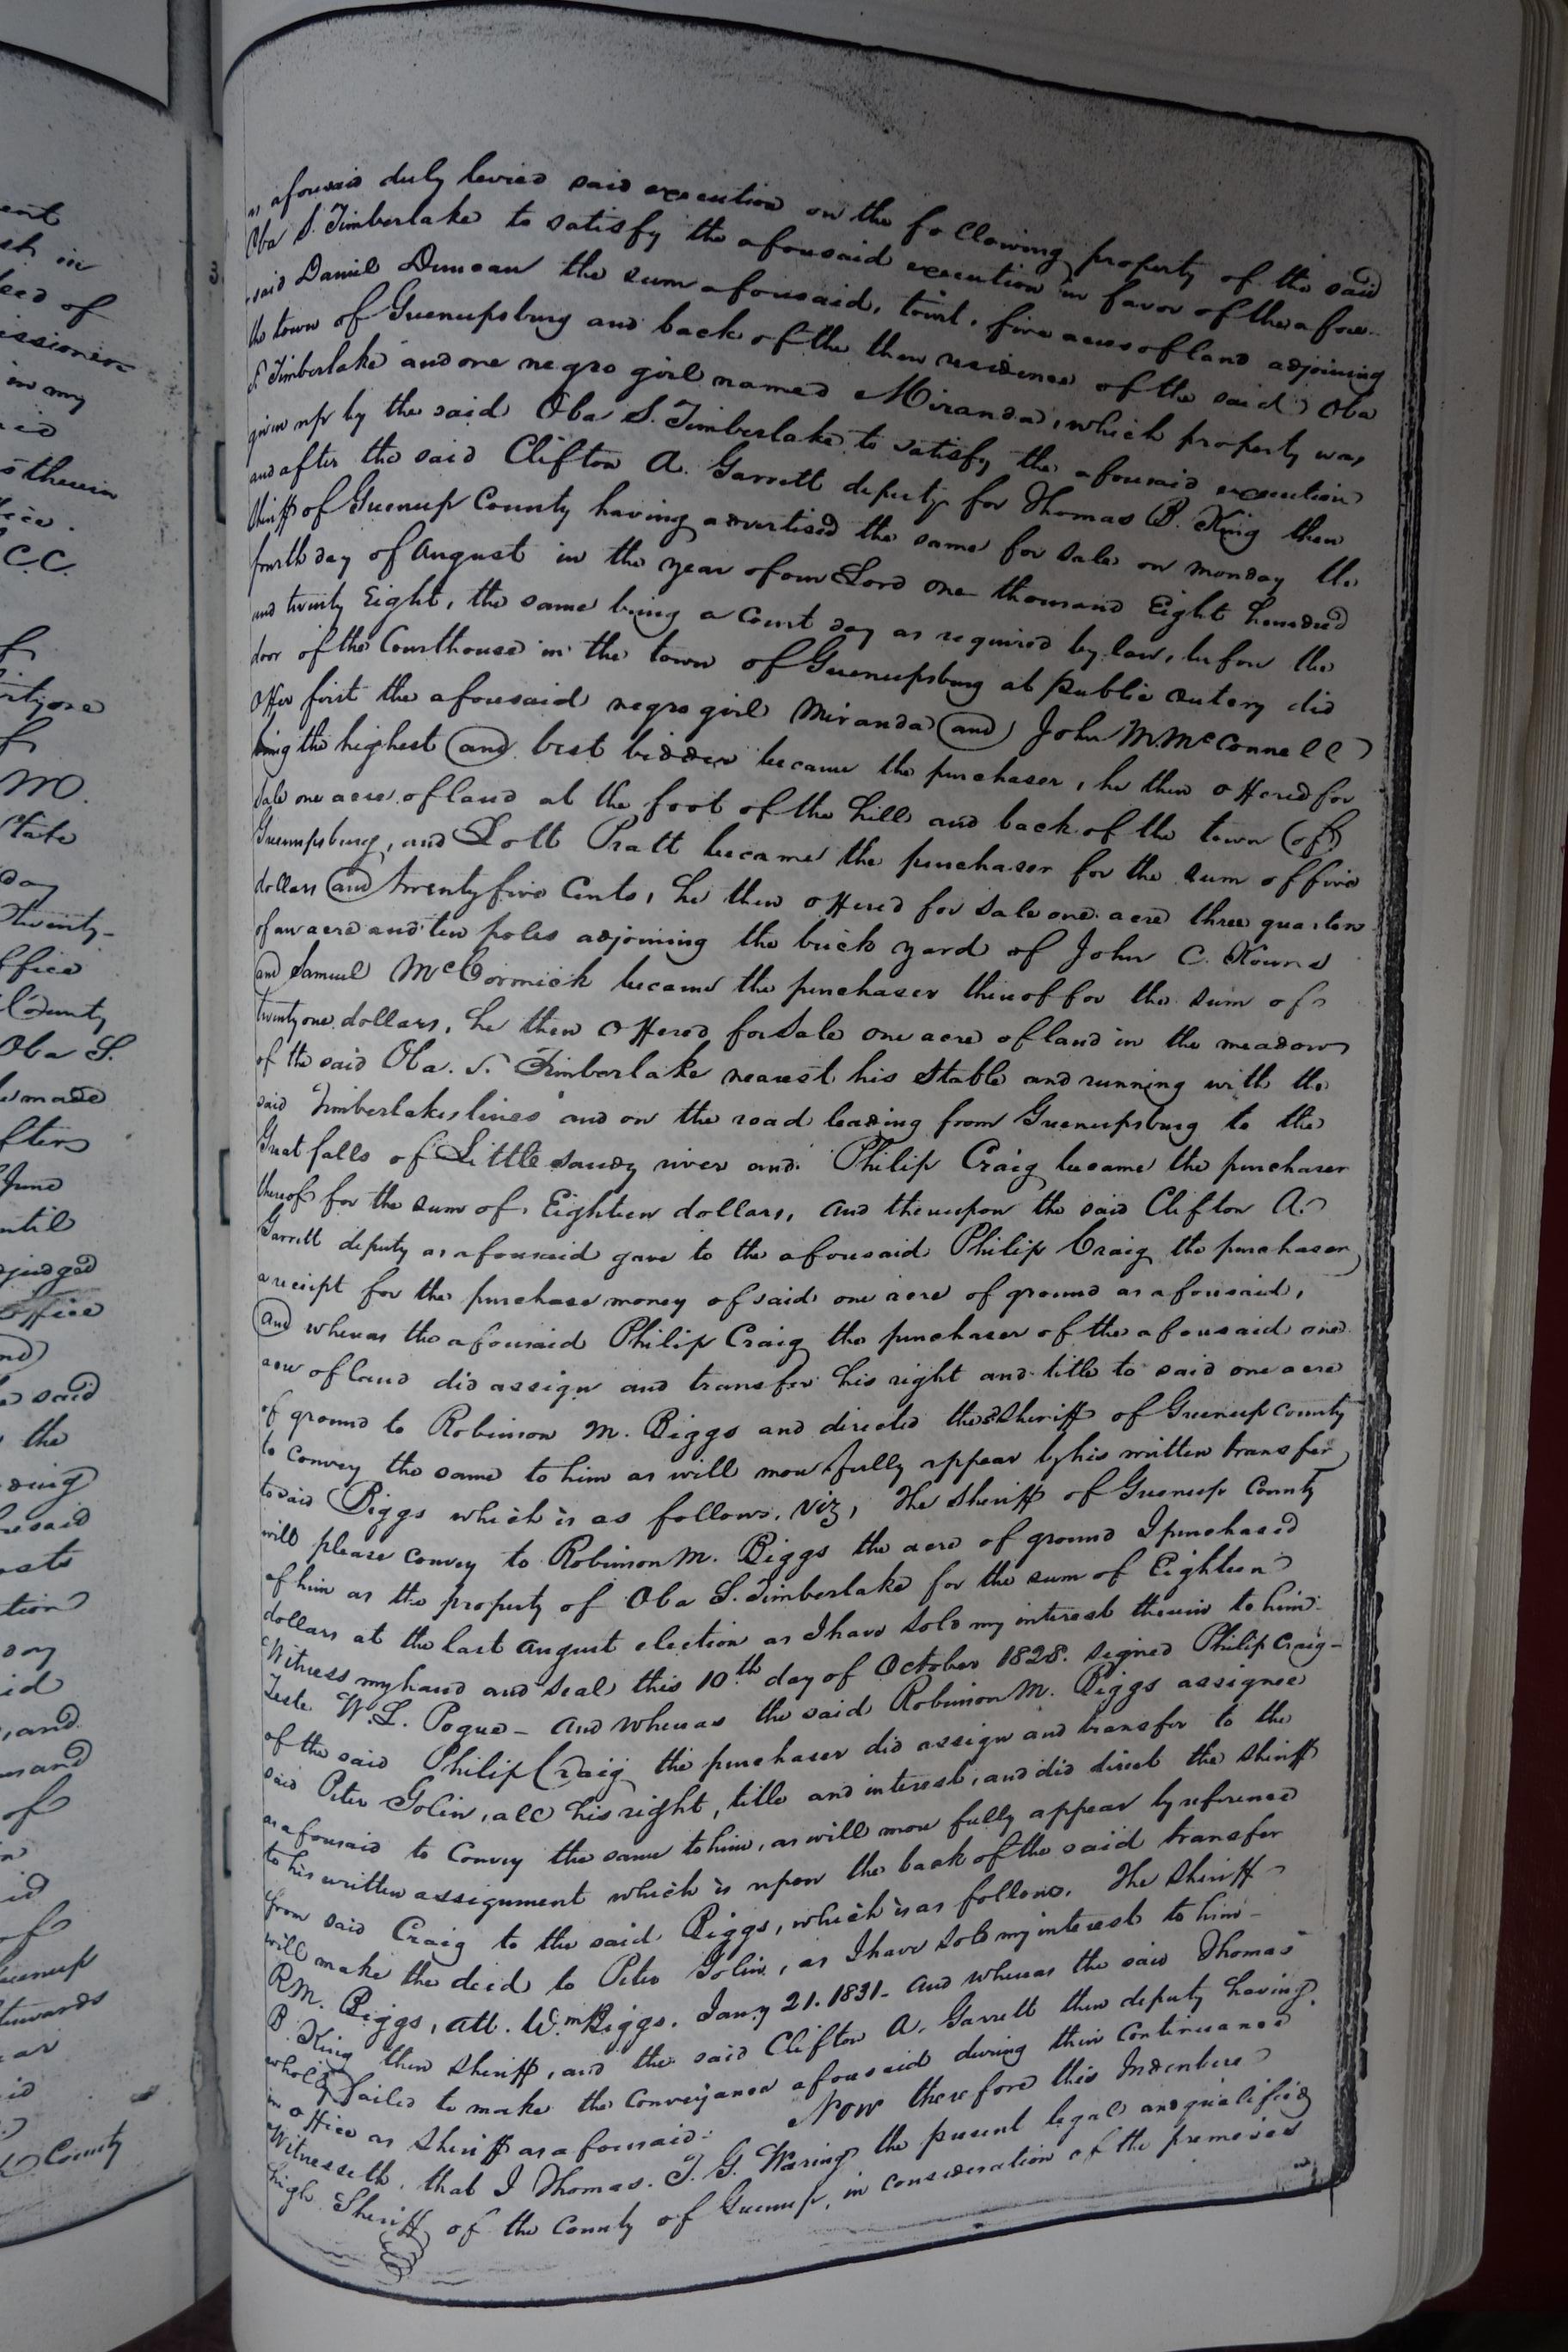 ent
sh in
eed of
issioner
in my
therein
ffice.
C.C.
of
M.
State
day
Twenty-
office
County
Oba S.
made
after
June
until
adjudged
office
said
the
said
costs
tion
day
id
, and
of
id
of
Greenup
ar
id
County
as aforesaid duly levied said execution on the following property of the said
Oba S. Timberlake to satisfy the aforesaid execution in favor of the afore-
said Daniel Duncan the sum aforesaid, towit, five acres of land adjoining
the town of Greenupsburg and back of the then residence of the said Oba
S. Timberlake and one negro girl named Miranda, which property was
given up by the said Oba S. Timberlake to satisfy the aforesaid execution
and after the said Clifton A. Garrett deputy for Thomas B. King then
Sheriff of Greenup County having advertised the same for sale on monday the
fourth day of August in the year of our Lord one thousand Eight hundred
and twenty Eight, the same being a Court day as required by law, before the
door of the Courthouse in the town of Greenupsburg at public outcry did
offer first the aforesaid negro girl Miranda and John M. McConnell
being the highest and best bidder became the purchaser, he then offered for
sale one acre of land at the foot of the hill and back of the town of
Greenupsburg, and Lott Pratt became the purchaser for the sum of five
dollars and twenty five Cents, he then offered for sale one acre three quarters
of an acre and ten poles adjoining the brick yard of John C. Kouns
and Samuel McCormick became the purchaser thereof for the sum of
twenty one dollars, he then offered for sale one acre of land in the meadow
of the said Oba S. Timberlake nearest his Stable and running with the
said Timberlakes lines and on the road leading from Greenupsburg to the
Great falls of Little Sandy river and Philip Craig became the purchaser
thereof for the sum of Eighteen dollars, and thereupon the said Clifton A.
Garrett deputy as aforesaid gave to the aforesaid Philip Craig the purchaser
a receipt for the purchase money of said one acre of ground as aforesaid,
and whereas the aforesaid Philip Craig the purchaser of the aforesaid one
acre of land did assign and transfer his right and title to said one acre
of ground to Robinson M. Biggs and directed the Sheriff of Greenup county
to convey the same to him as will more fully appear by his written transfer
to said Biggs which is as follows. Viz, The Sheriff of Greenup County
will please convey to Robinson M. Biggs the acre of ground I purchased
of him as the property of Oba S. Timberlake for the sum of Eighteen
dollars at the last August election as I have sold my interest therein to him.
Witness my hand and seal this 10th day of October 1828. signed Philip Craig-
Teste W. L. Pogue - And whereas the said Robinson M. Biggs assignee
of the said Philip Craig the purchaser did assign and transfer to the
said Peter Golin, all his right, title and interest, and did direct the Sheriff
as aforesaid to Convey the same to him, as will more fully appear by reference
to his written assignment which is upon the back of the said transfer
from said Craig to the said Biggs, which is as follows. The Sheriff
will make the deed to Peter Golin, as I have sold my interest to him-
R.M. Biggs, att. Wm Biggs. Jany 21. 1831- And whereas the said Thomas
B. King then Sheriff, and the said Clifton A. Garrett then deputy having
wholly failed to make the conveyance aforesaid during their Continuance
in office as Sheriff as aforesaid. Now therefore this Indenture
Witnesseth, that I Thomas. T. G. Waring the present legal and qualified
high Sheriff of the County of Greenup, in consideration of the premises